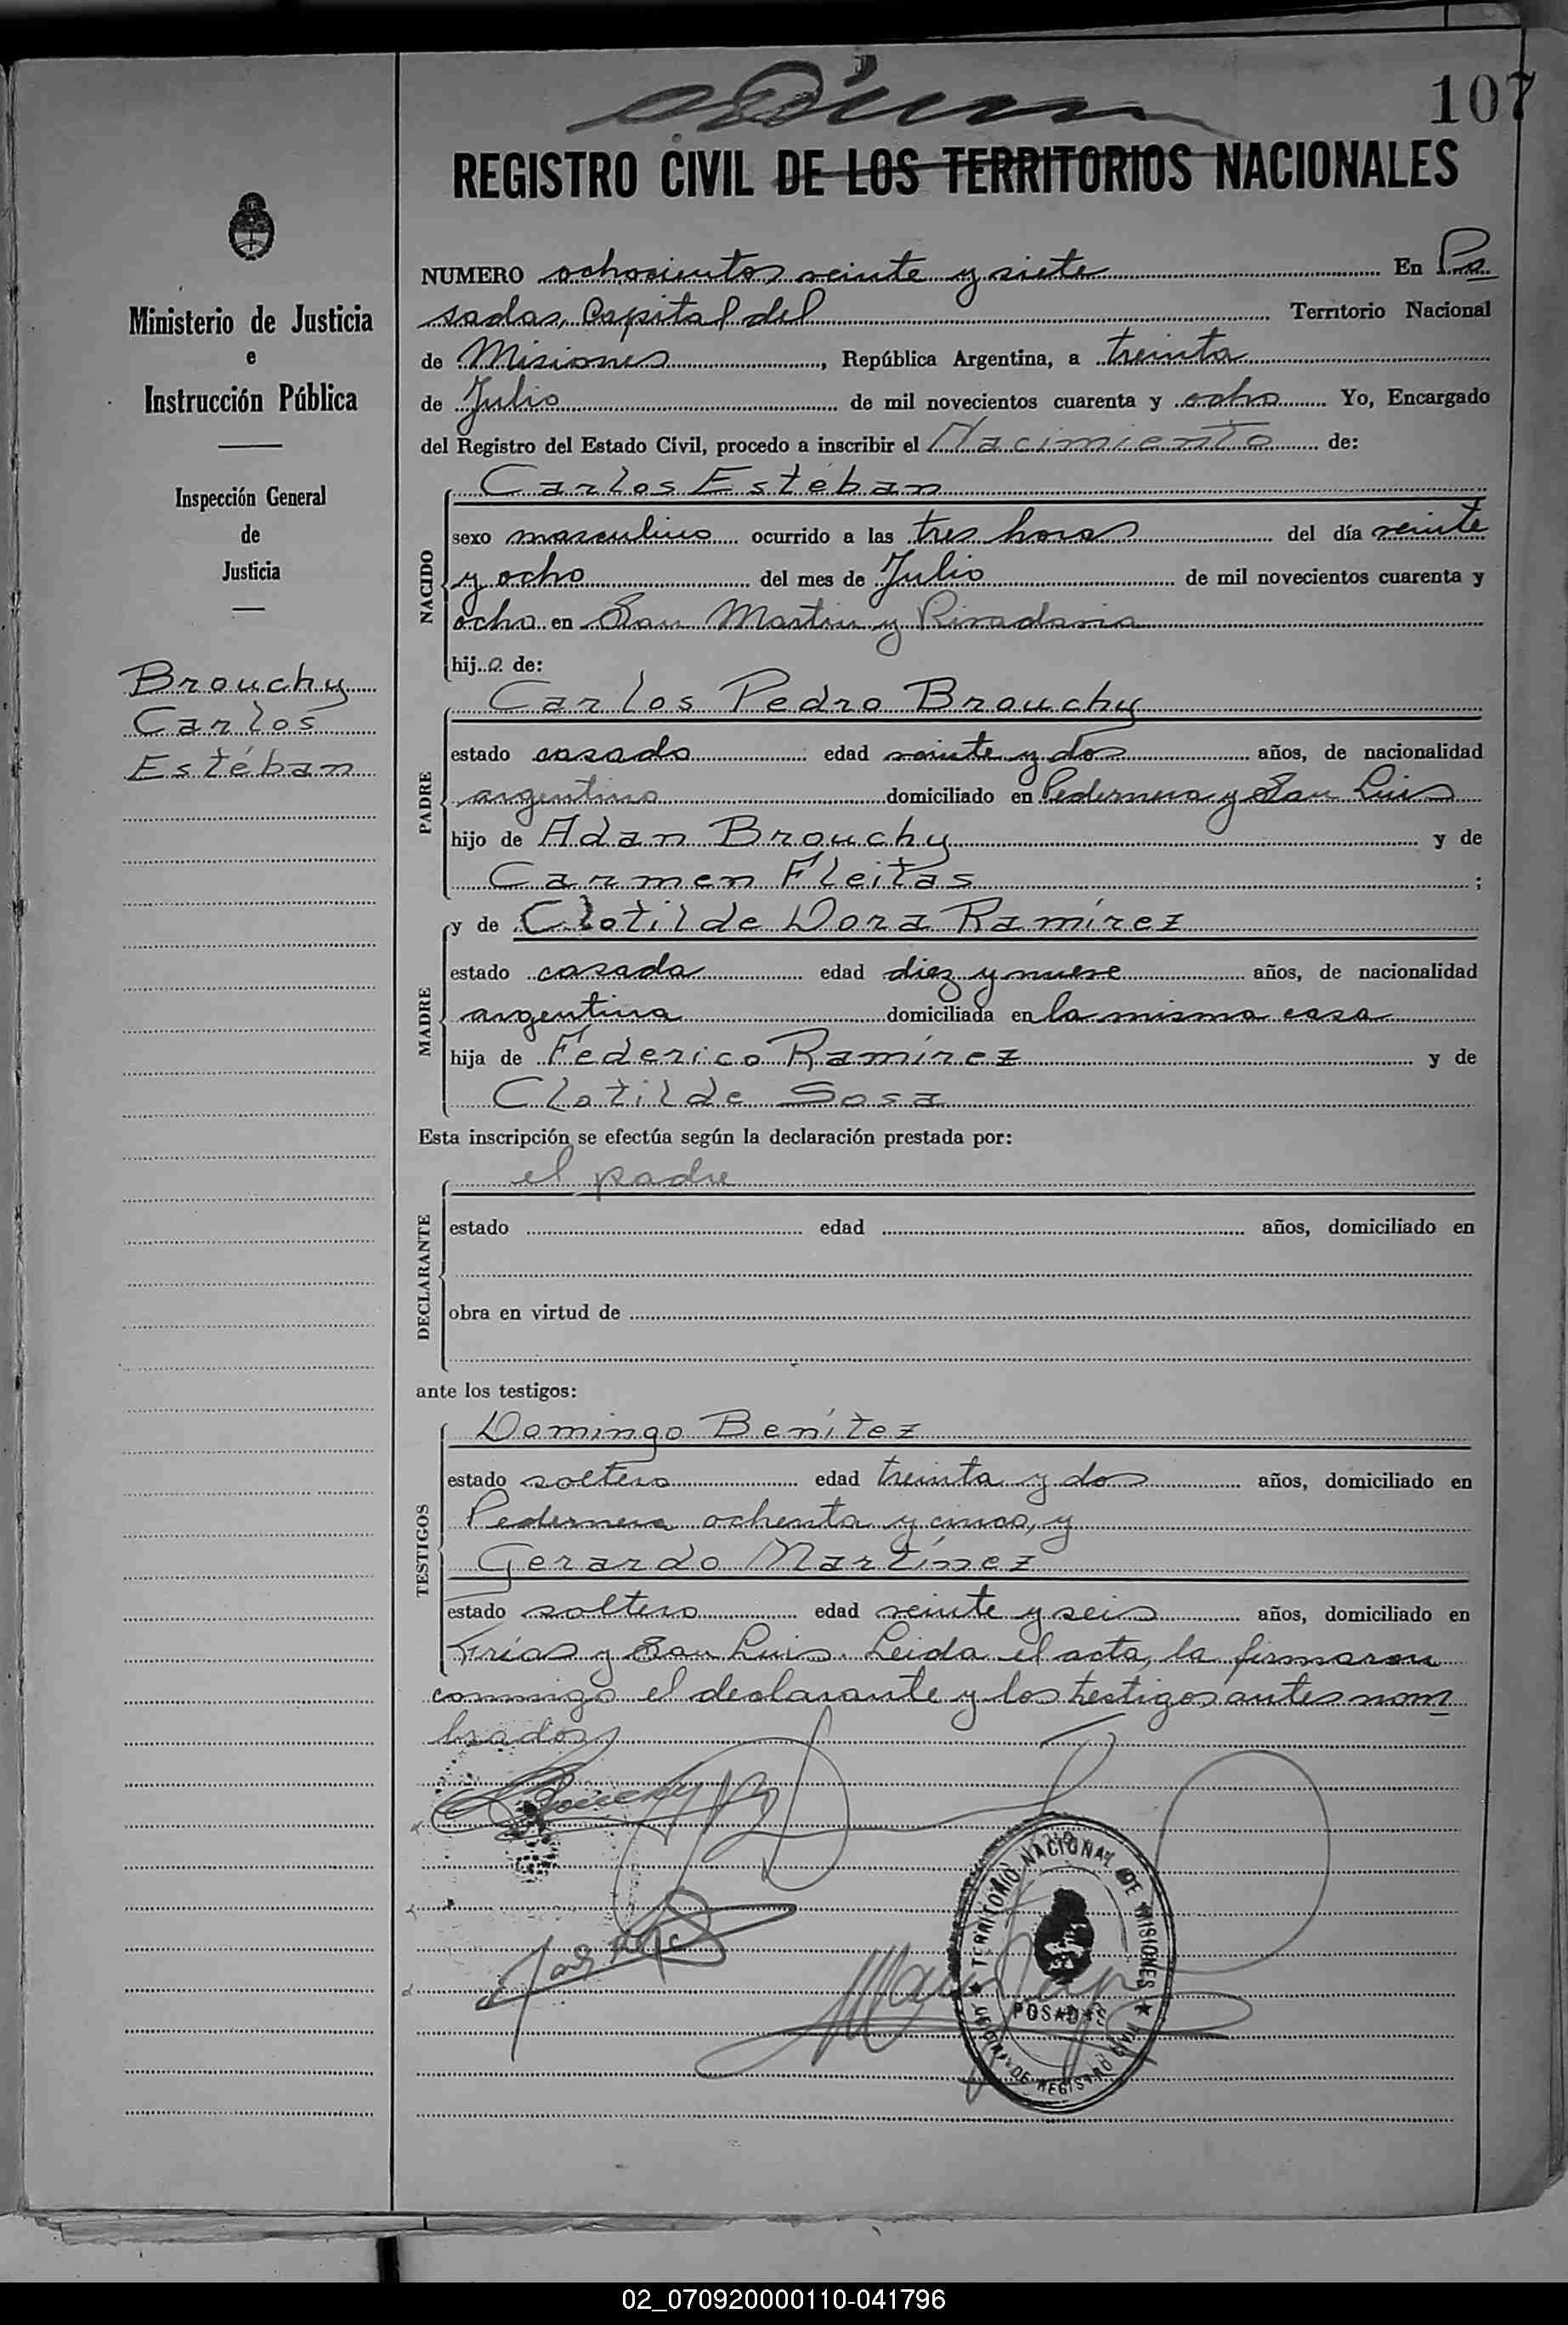 107
REGISTRO CIVIL DE LOS TERRITORIOS NACIONALES
Ministerio de Justicia
e
Instrucción Pública
Inspección General
de
Justicia
Brouchy
Carlos
Estéban
NUMERO ochocientos veinte y siete En Po
sadas, Capital del Territorio Nacional
de Misiones, República Argentina, a treinta
de Julio de mil novecientos cuarenta y ocho Yo, Encargado
del Registro del Estado Civil, procedo a inscribir el Nacimiento de:
NACIDO
Carlos Estéban
sexo masculino ocurrido a las tres horas del día veinte
y ocho del mes de Julio de mil novecientos cuarenta y
ocho en San Martin y Rivadavia
hijo de:
PADRE
Carlos Pedro Brouchy
estado casado edad veinte y dos años, de nacionalidad
argentino domiciliado en Pedernera y San Luis
hijo de Adan Brouchy y de
Carmen Fleitas ;
MADRE
y de Clotilde Dora Ramírez
estado casada edad diez y nueve años, de nacionalidad
argentina domiciliada en la misma casa
hija de Federico Ramírez y de
Clotilde Sosa
Esta inscripción se efectúa según la declaración prestada por:
DECLARANTE
el padre
estado edad años, domiciliado en
obra en virtud de
ante los testigos:
TESTIGOS
Domingo Benítez
estado soltero edad treinta y dos años, domiciliado en
Pedernera ochenta y cinco, y
Gerardo Martínez
estado soltero edad veinte y seis años, domiciliado en
Frías y San Luis. Leida el acta, la firmaron
conmigo el declarante y los testigos antes nom
brados
Brouchy
TERRITORIO NACIONAL DE MISIONES
POSADAS
OFICINA DE REGISTRO CIVIL
02_070920000110-041796